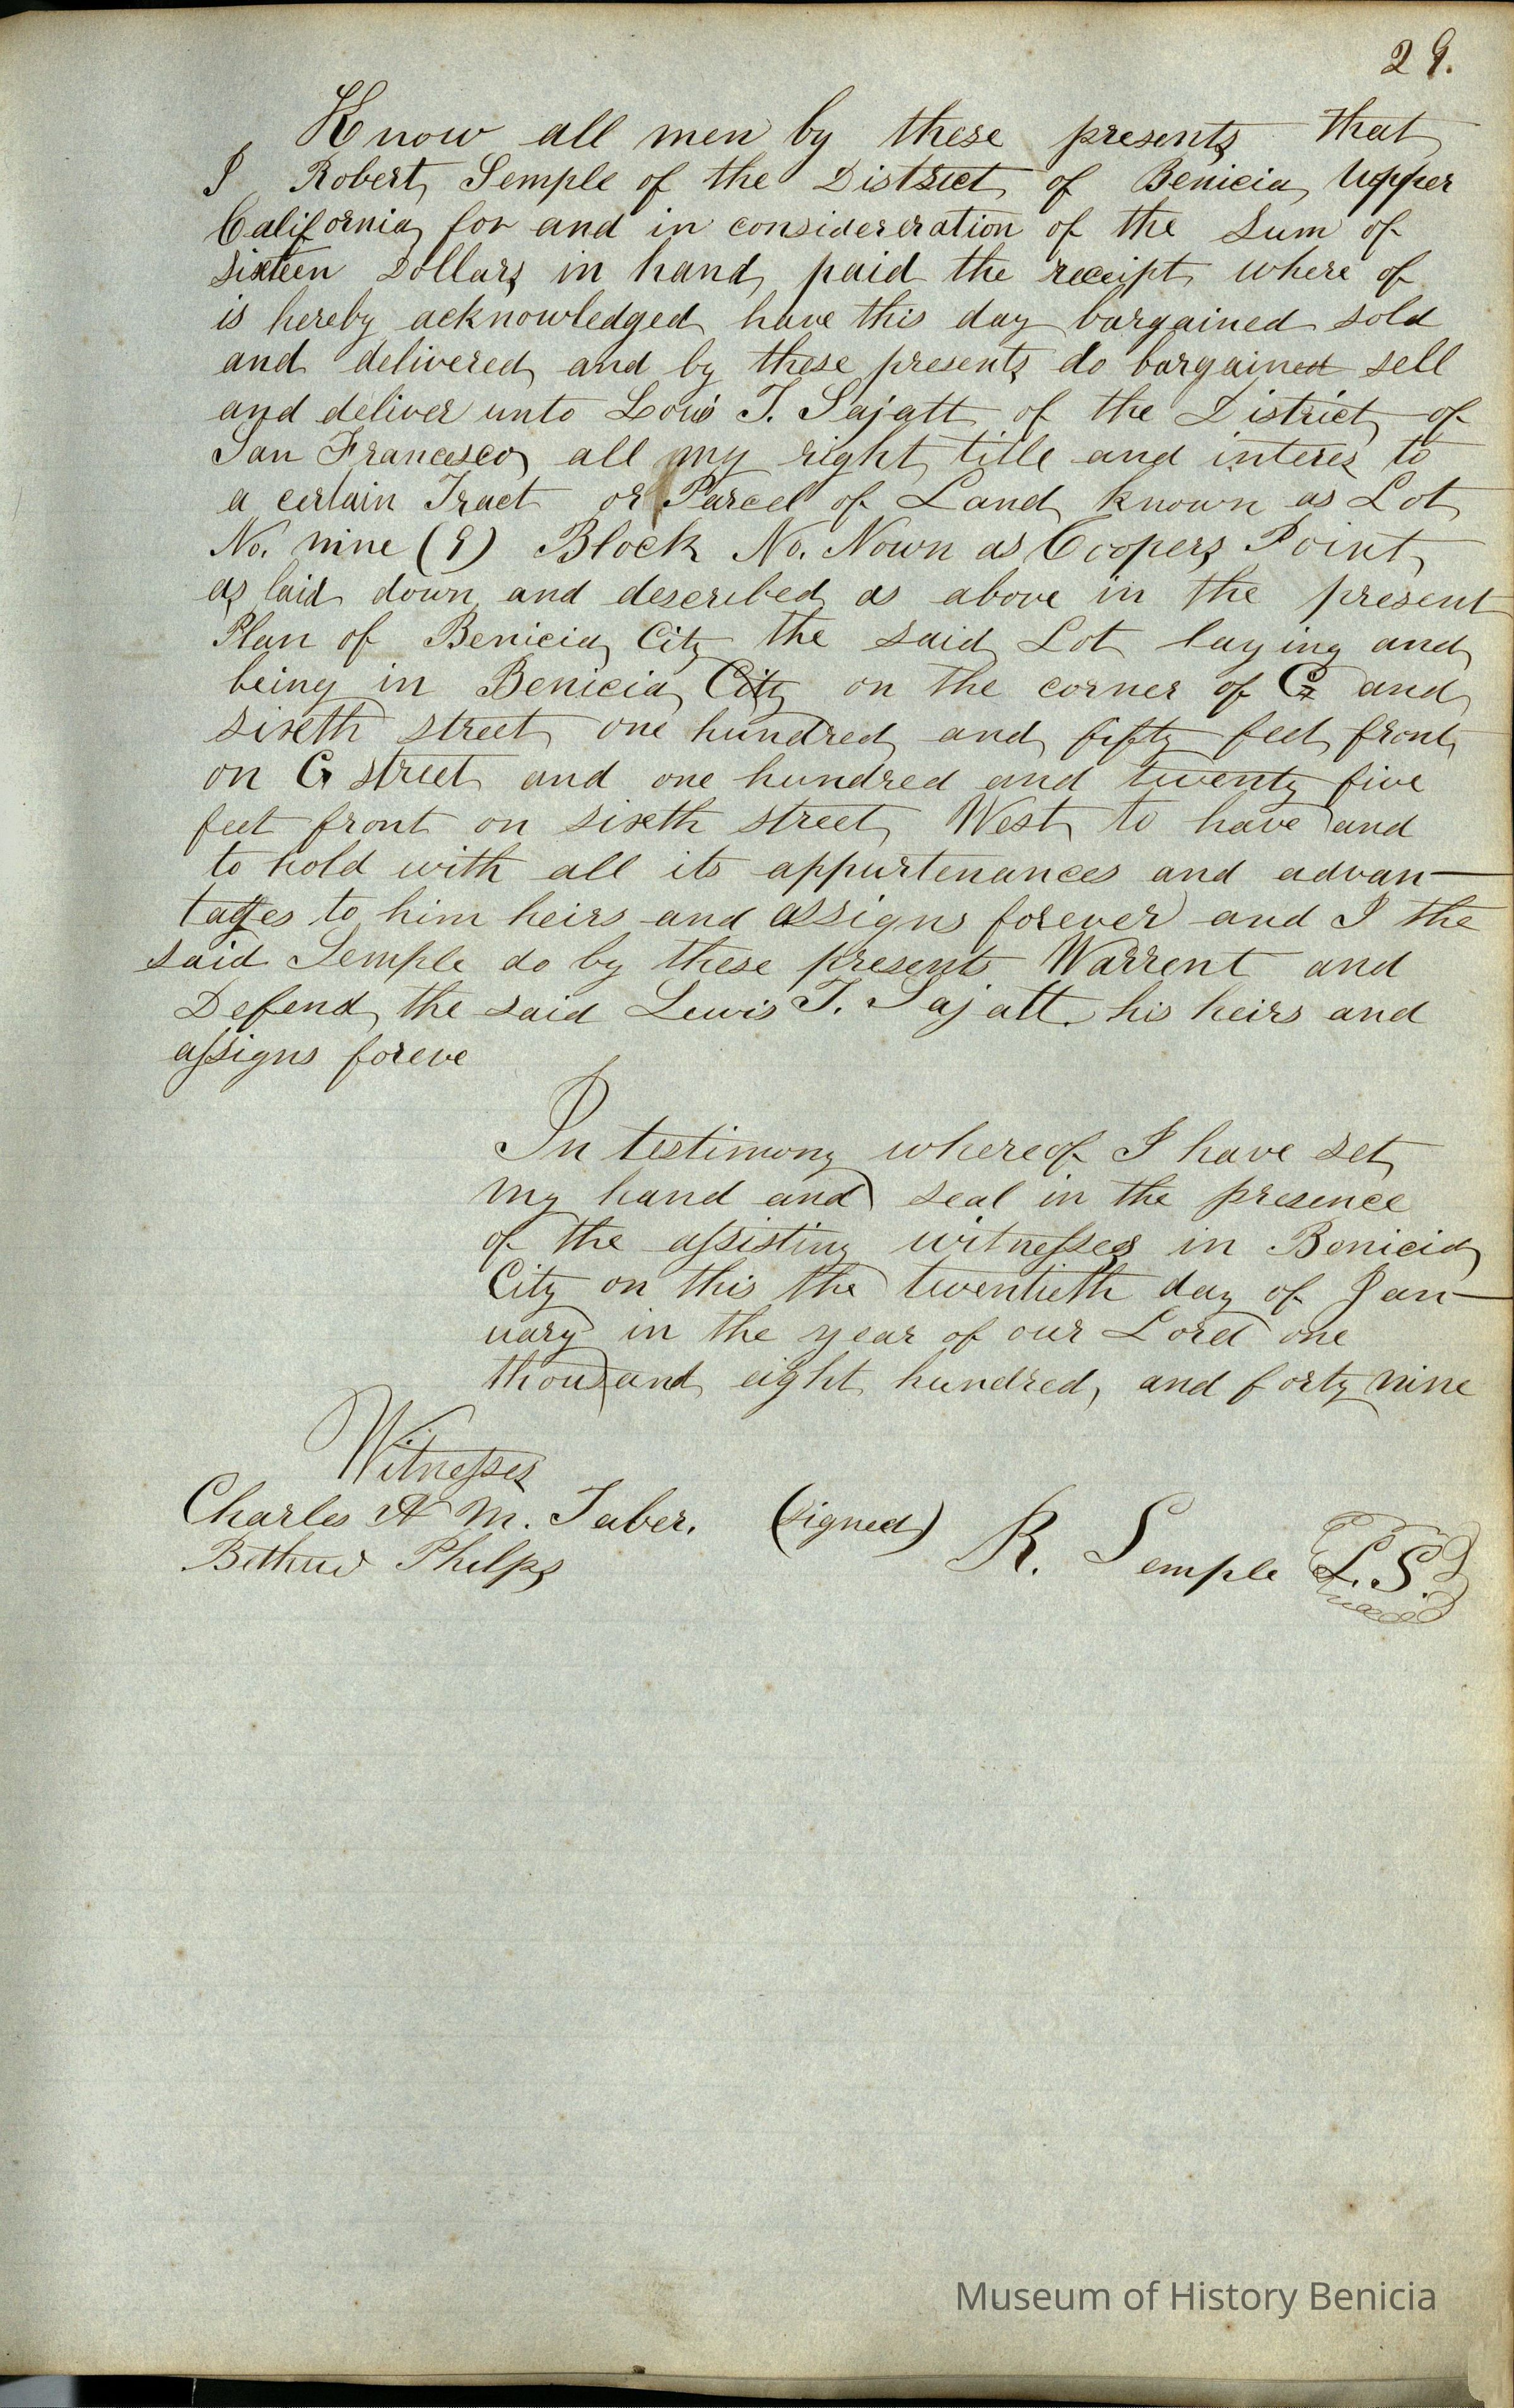 29.
Know all men by these presents that
I Robert Semple of the District of Benicia Upper
California for and in considereration of the Sum of
sixteen Dollars in hand paid the receipt where of
is hereby acknowledged have this day bargained sold
and delivered and by these presents do bargained sell
and deliver unto Louis T. Sajatt of the District of
San Francesco all my right title and interes to
a certain Tract or Parcel of Land known as Lot
No. nine (9) Block No. Nown as Coopers Point
as laid down and described as above in the present
Plan of Benicia City the said Lot laying and
being in Benicia City on the corner of G and
sixeth street one hundred and fifty feet front
on G street and one hundred and twenty five
feet front on sixeth street West to have and
to hold with all its appurtenances and advan-
tages to him heirs and assigns forever and I the
said Semple do by these presents Warrent and
Defend the said Lewis T. Sajatt his heirs and
assigns foreve
In testimony whereof I have set
my hand and seal in the presence
of the assisting witnesses in Benicia
City on this the twentieth day of Jan-
uary in the year of our Lord one
thousand eight hundred, and forty nine
Witnesses
Charles A M. Taber. (signed) R. Semple L.S.
Phelps
Museum of History Benicia